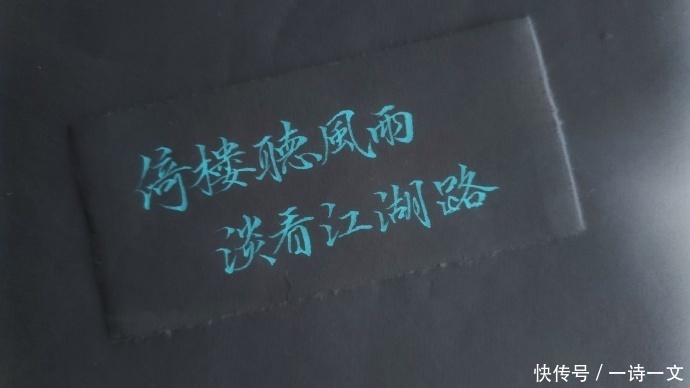 倚楼聽風雨
淡看江湖路
快传号/一诗一文